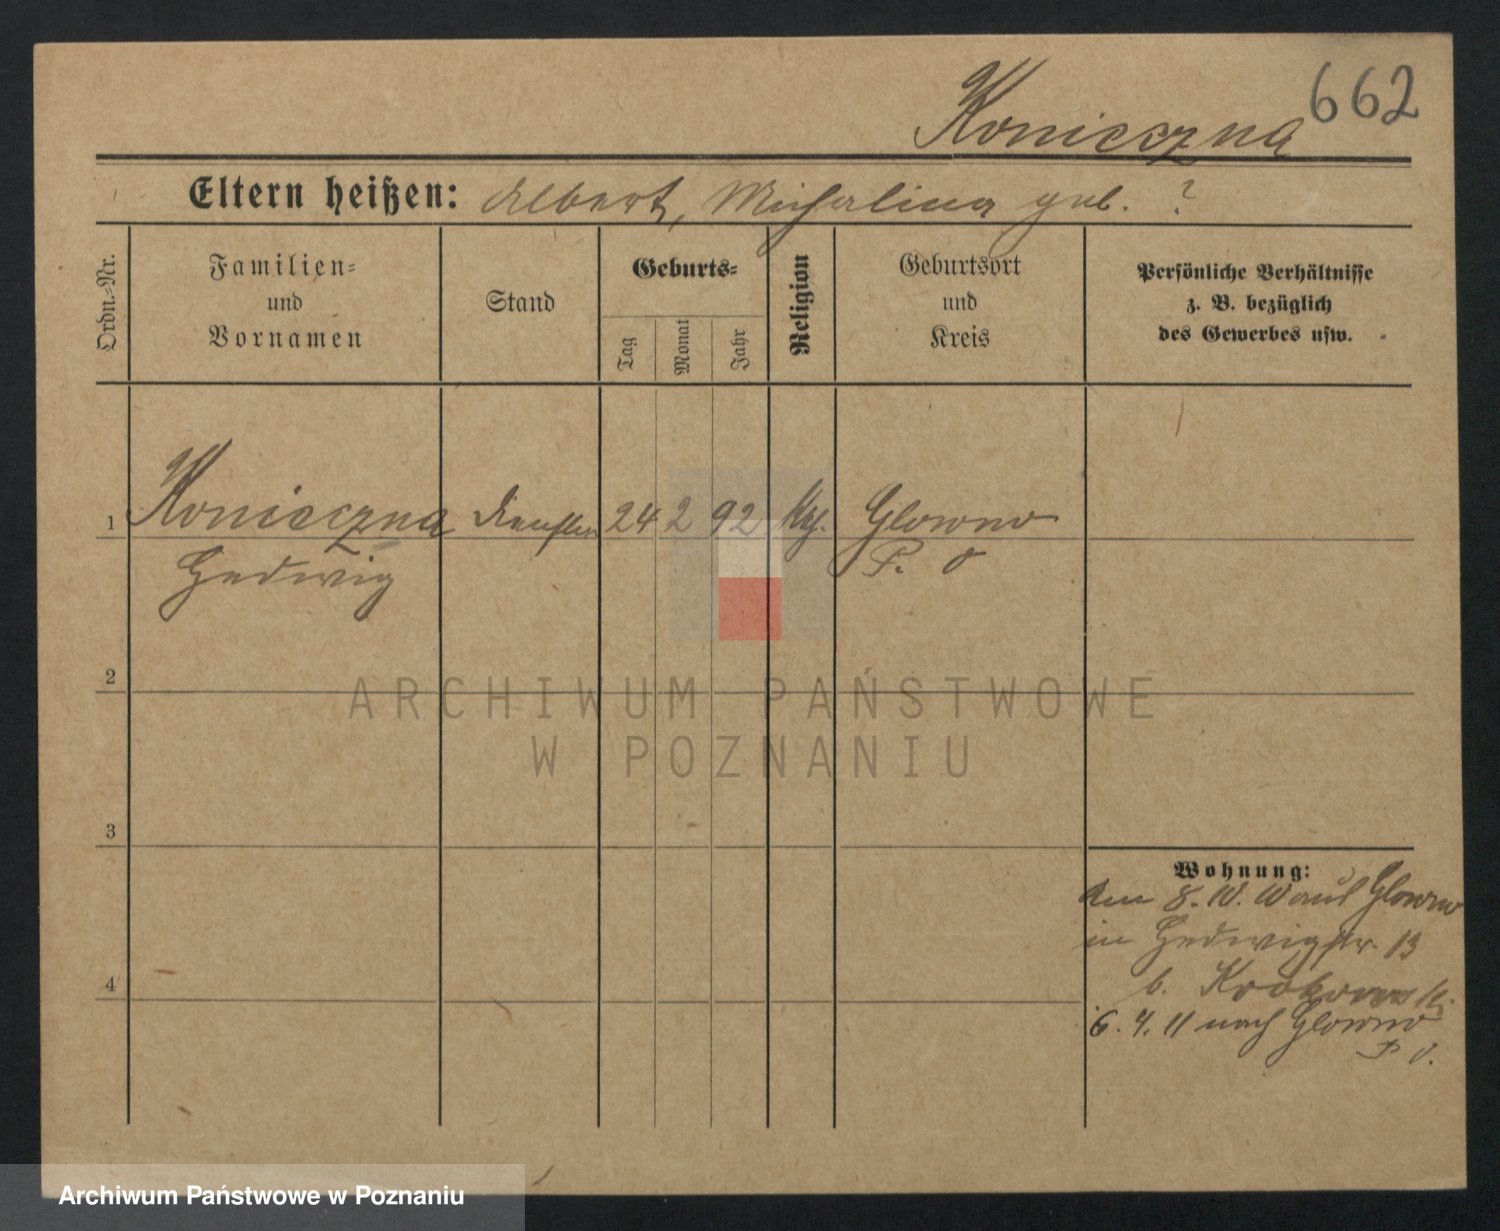 662
Konieczna
Eltern heißen: Albert, Michalina geb. ?
Ordn.-Nr.
Familien-
und
Vornamen
Stand
Geburts-
Tag
Monat
Jahr
Religion
Geburtsort
und
Kreis
Persönliche Verhältnisse
z. B. bezüglich
des Gewerbes usw.
1
Konieczna 24 2 92 Glowno
Hedwig P. O
2
3
4
Wohnung:
Am 8. 10. aus Glowno
in Hedwigstr. 13
b.
6. 4. 11 nach Glowno
P O.
ARCHIWUM PAŃSTWOWE
W POZNANIU
Archiwum Państwowe w Poznaniu